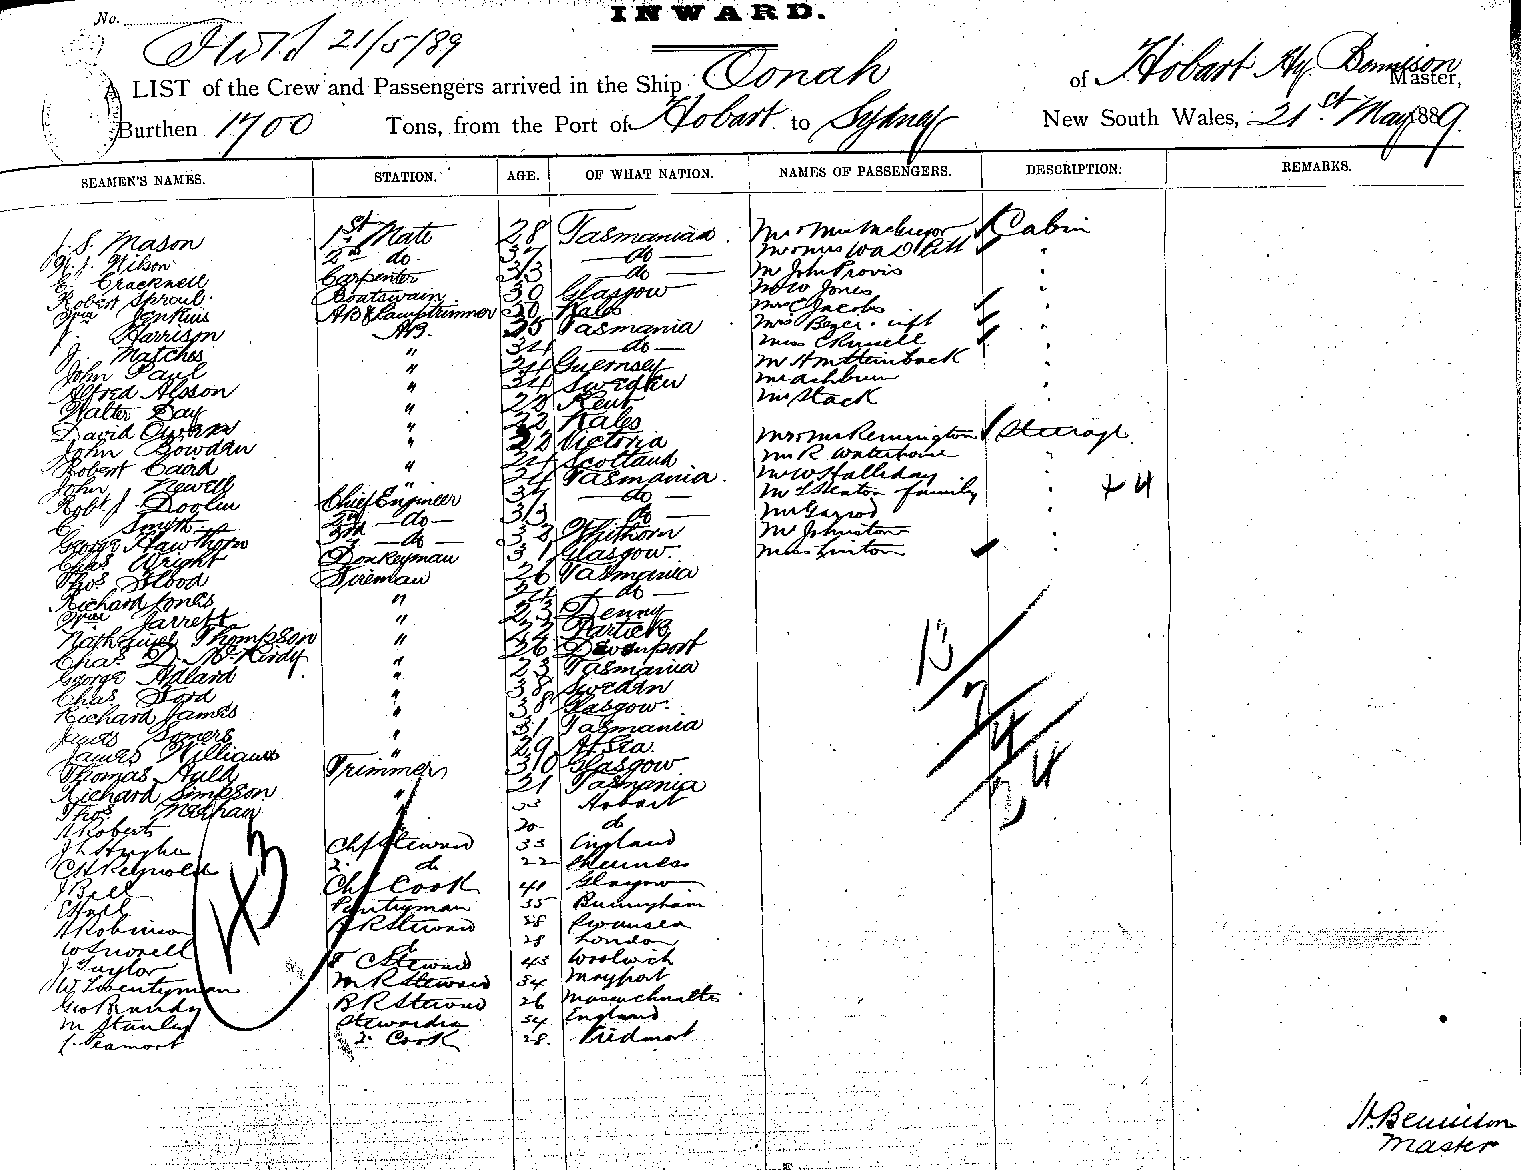 No.
INWARD.
21/5/89
A LIST of the Crew and Passengers arrived in the Ship Oonah of Hobart Hy Bennison Master,
Burthen 1700 Tons, from the Port of Hobart to Sydney New South Wales, 21st May 1889.
SEAMEN'S NAMES. STATION. AGE. OF WHAT NATION. NAMES OF PASSENGERS. DESCRIPTION. REMARKS.
J. S. Mason 1st Mate 28 Tasmanian Mr & Mrs McGregor Cabin
Wilson 2nd do 37 do Mr & Mrs Pitt "
Cracknell Carpenter 33 do Mr John Provis "
Robert Sproul Boatswain 30 Glasgow Mr W Jones "
Wm Jenkins AB & lamptrimmer 20 Wales Mrs Jacobs "
J. Harrison AB. 35 Tasmania Mrs "
J. Matches " 34 do Miss C Russell "
John Paul " 24 Guernsey Mr Steinback "
Alfred Alsson " 34 Sweden "
Walter Day " 28 Kent Mr Stack "
David Owens " 22 Wales
John Bowden " 22 Victoria Mr & Mrs Remington Steerage
Robert Caird " 24 Scotland Mr R Waterhouse "
John Newell " 24 Tasmania Mr W Halliday "
Robt J. Doolin Chief Engineer 37 do Mr family " + 4
C. Smyth 2nd do 33 do Mr Garrod "
George Hawthorn 3rd do 38 Whithorn Mr Johnston "
Chas Wright Donkeyman 31 Glasgow Miss Linton "
Thos Flood Fireman 26 Tasmania
Richard Jones " 24 do
Wm Jarrett " 23 Denny
Nathaniel Thompson " 22 Partick
Chas D. McKirdy " 26 Devonport
George Adlard " 23 Tasmania
Chas Ford " 38 Sweden
Richard James " 38 Glasgow
Somers " 31 Tasmania
James Williams " 29 At Sea
Thomas Auld Trimmer 30 Glasgow
Richard Simpson " 21 Tasmania
Thos Meehan " Hobart
Roberts 20 do
Hughes Chf Steward 33 England
C H Reynolds 2 do 22 Sheerness
J Bell Chf Cook 41 Glasgow
Pantryman 35 Birmingham
Robinson Steward 28 Swansea
do 28 London
J Taylor Steward 43 Woolwich
W Twentyman Steward 34 Maryport
Geo Brundy Steward 26 Massachusetts
M Stanley Stewardess 34 England
2 Cook 28 Piedmont
43
13
7
4
24
H. Bennison
Master